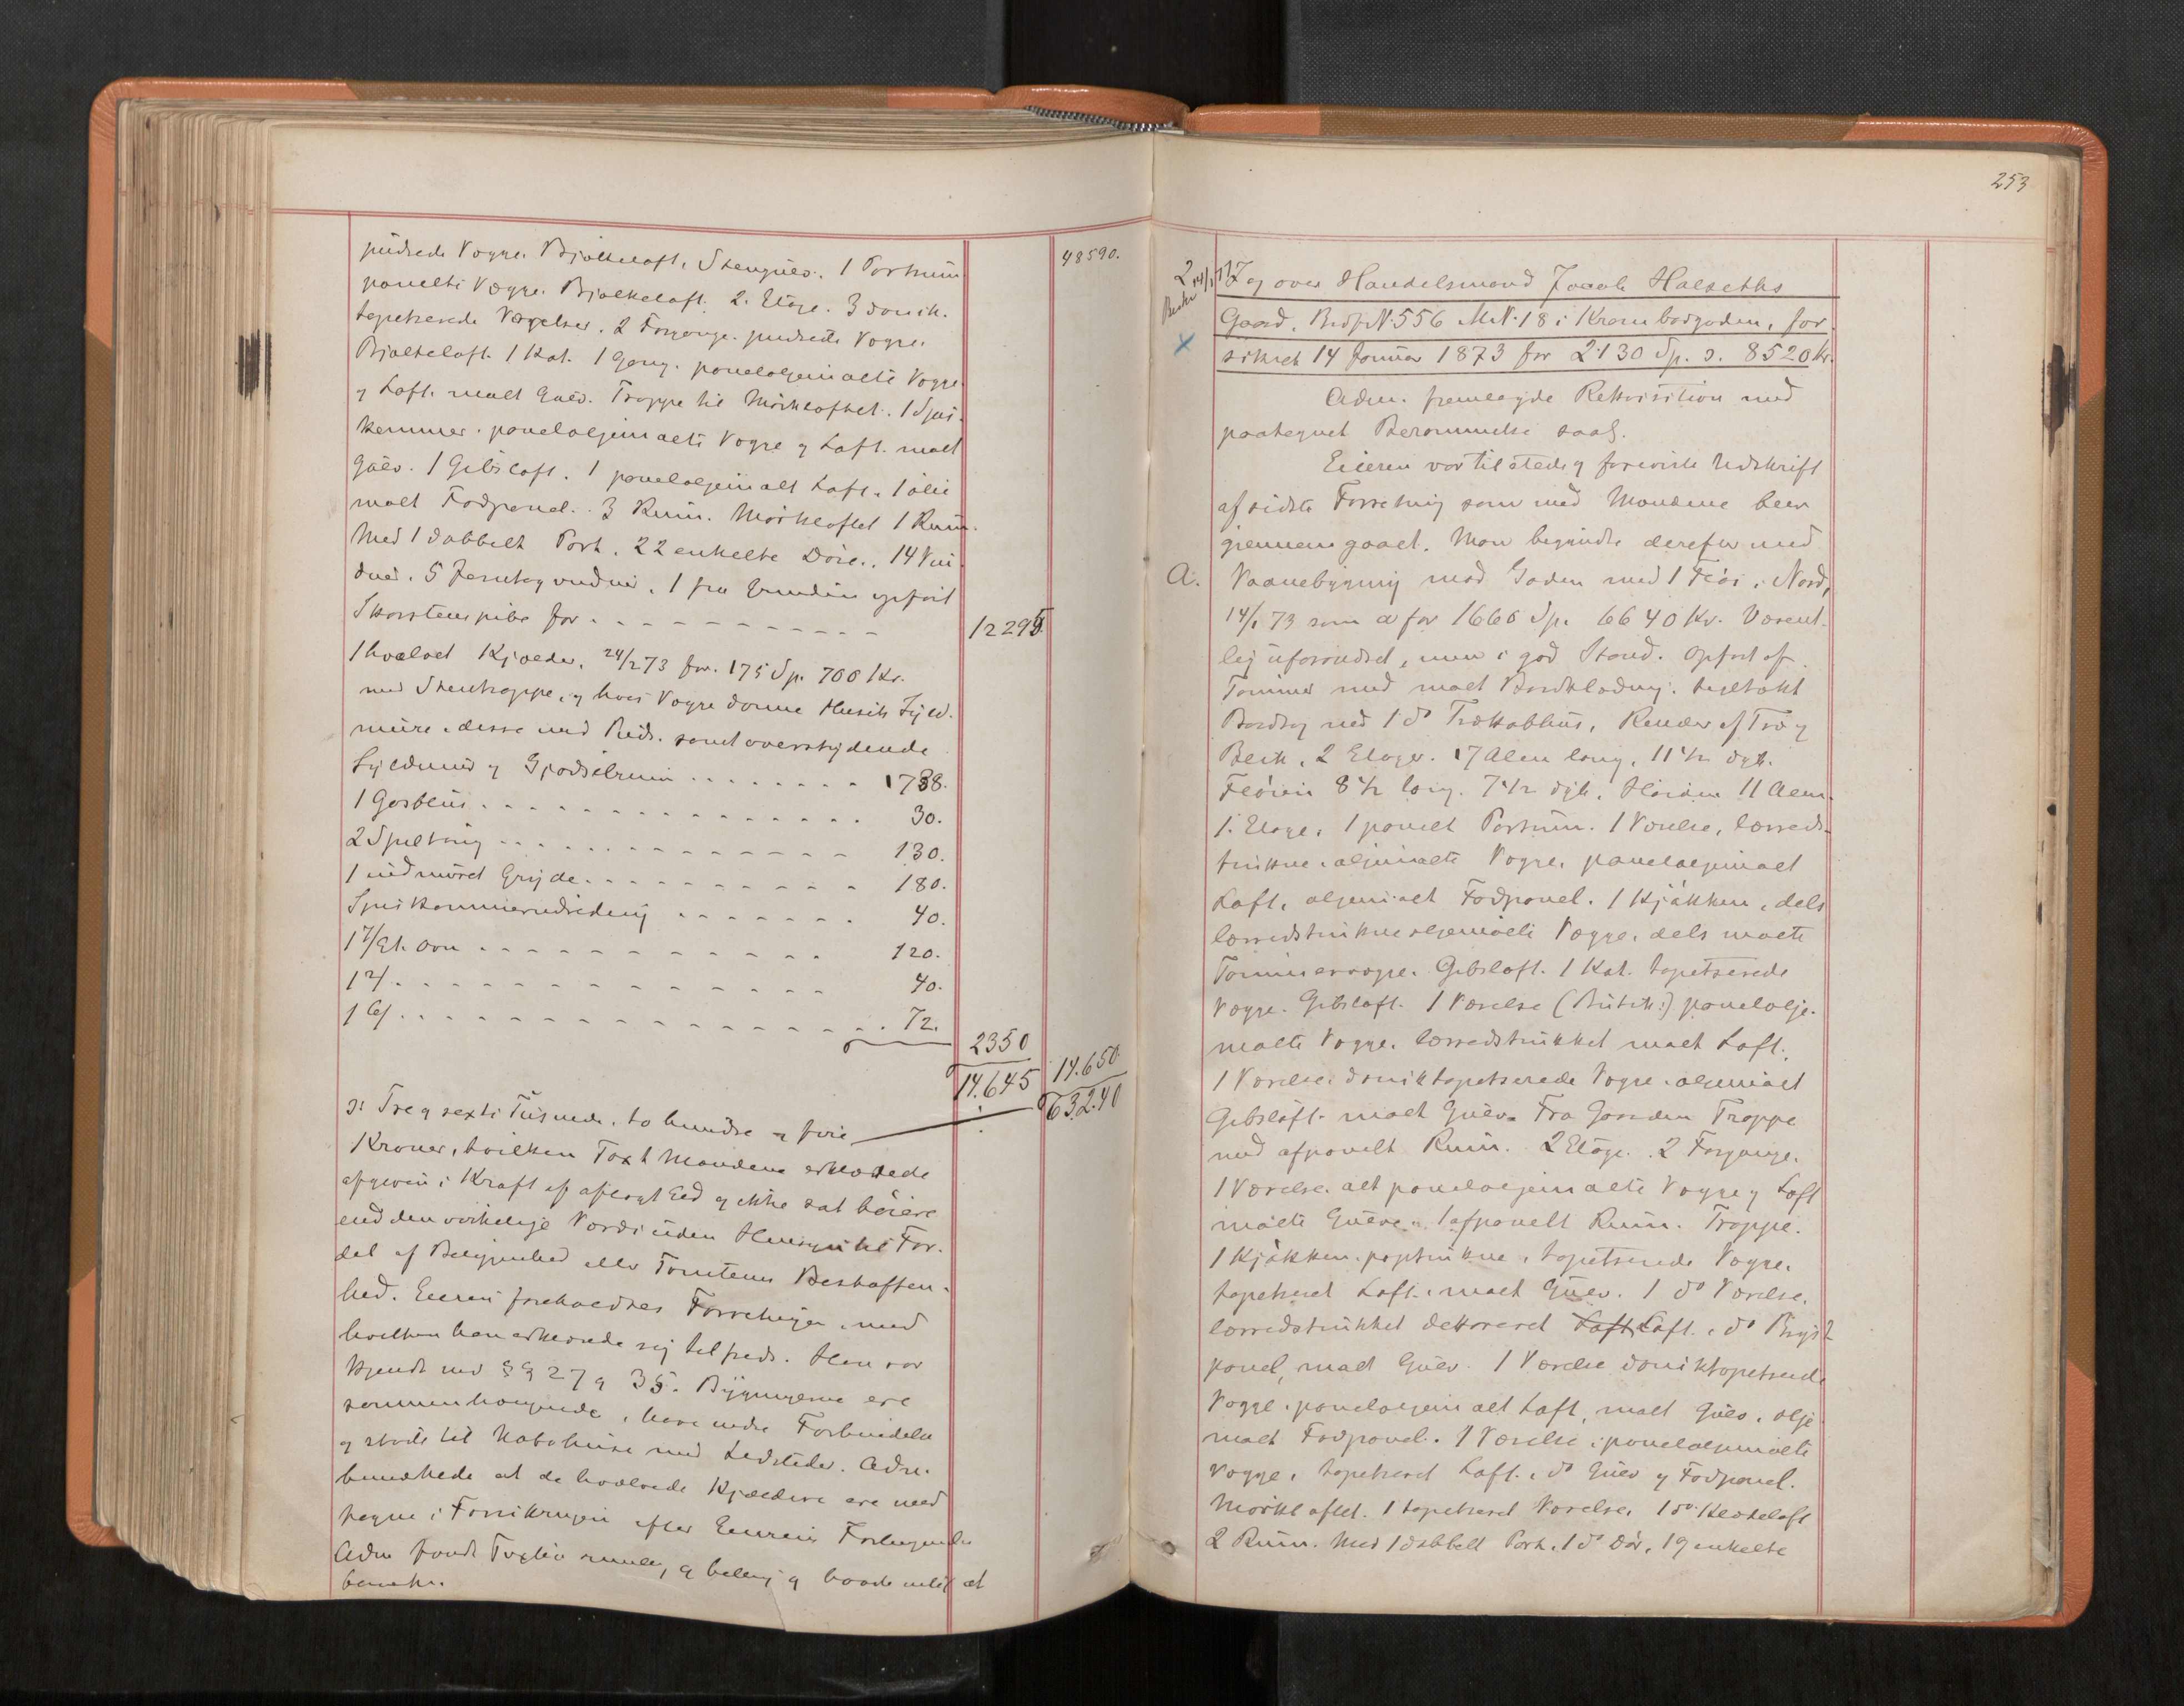 48590.
pudsede Vægge. Bjælkeloft. Stengulv. 1 Portrum
panelte Vægge. Bjælkeloft. 2. Etage. 3 donik.
tapetserede Værelser. 2 Forgange. pudsede Vægge.
Bjælkeloft. 1 Kat. 1 Gang. paneloljemalte Vægge
og Loft. malt Gulv. Trappe til Mørkloftet. 1 Spis-
kammer. paneloljemalte Vægge og Loft. malt
Gulv. 1 Gibsloft. 1 paneloljemalt Loft. 1 olie
malt Fodpanel. 3 Rum. Mørkloftet 1 Rum.
Med 1 dobbelt Port. 22 enkelte Døre. 14 Vin
duer. 5 Jerntagvinduer. 1 fra Grunden opført
Skorstenspibe for - - - - - - - - - - 12295.
1 hvælvet Kjælder. 24/2 73 for. 175 Sp. 700 Kr.
med Stentrappe, og hvis Vægge danne Husets Syld-
mure. disse med Puds. samt overskydende
Syldmur og Gjødselrum . . . . . . . . 1738.
1 Gasblus . . . . . . . . . . . . . 30.
2 Spiltoug - - - - - - - - - - - - 130.
1 indmuret Gryde - - - - - - - - - - 180.
Spiskammerindredning - - - - - - - 40.
1 7/Et. Ovn - - - - - - - - - - - 120.
1 2/ . - - - - - - - - - - - - - 40.
1 6/ . . - - - - - - - - - - - - - 72.
2350
14.645 14.650
63.240
ɔ: Tre og sexti Tusinde, to hundre og førti
Kroner, hvilken Taxt Mændene erklærede
afgiven i Kraft af aflagt Eed og ikke sat høiere
end den virkelige Værdi uden Hensyn til For-
del af Beliggenhed eller Tomtens Beskaffen-
hed. Eieren foreholdtes Forretningen, med
hvilken han erklærede sig tilfreds. Han var
kjendt med §§ 27 og 35. Bygningerne ere
sammenhængende, have indre Forbindelse
og støde til Nabohuse med Ledsteder. Adm.
bemærkede at de hvælvede Kjældere ere med
tagne i Forsikringen efter Eierens Forlangende
Adm fandt Taxten rimelig og billig og havde intet at
bemærke.
253
2
Beskr
14/1 77
Tag over Handelsmand Jacob Halseths
Gaard, BrdfN. 556 MN. 18 i Krambodgaden, for
sikret 14 Januar 1873 for 2130 Sp. ɔ. 8520 Kr.
Adm. fremlagde Rekvisition med
paategnet Berammelse saal.
Eieren var tilstede og foreviste Udskrift
af sidste Forretning som med Mændene blev
gjennemgaaet. Man begyndte derefter med
A. Vaanebygning mod Gaden med 1 Fløi i Nord,
14/1 73 som a for 1660 Sp. 6640 Kr. Væsent-
lig uforandret, men i god Stand. Opført af
Tømmer med malt Bordklædning. teglstakt
Bordtag med 1 do Trætakhus, Render af Træ og
Blik, 2 Etager. 17 Alen lang, 11 1/2 dyb.
Fløien 8 1/2 lang. 7 1/2 dyb. Høiden 11 Alen.
1. Etage. 1 panelt Portrum. 1 Værelse, lærreds-
trukne oljemalte Vægge, paneloljemalt
Loft, oljemalt Fodpanel. 1 Kjøkken, dels
lærredstrukne oljemalte Vægge, dels malte
Tømmervægge. Gibsloft. 1 Kat. tapetserede
Vægge. Gibsloft. 1 Værelse (Butik:) panelolje-
malte Vægge, lærredstrukket malt Loft.
1 Værelse. doniktapetserede Vægge. oljemalt
Gibsloft. malt Gulv. Fra Gaarden Trappe
med afpanelt Rum. 2 Etage. 2 Forgange.
1 Værelse. alt paneloljemalte Vægge og Loft
malte Gulve. 1 afpanelt Rum. Trappe.
1 Kjøkken. paptrukne, tapetserede Vægge.
tapetseret Loft, malt Gulv. 1 do Værelse.
lærredstrukket dekoreret Loft, Loft. do Bryst
panel, malt Gulv. 1 Værelse doniktapetserede
Vægge. paneloljemalt Loft, malt Gulv, olje
malt Fodpanel. 1 Værelse. paneloljemalte
Vægge, tapetseret Loft. do Gulv og Fodpanel.
Mørkloftet. 1 tapetseret Værelse. 1 do. Klædeloft
2 Rum. Med 1 dobbelt Port. 1 do Dør, 19 enkelte